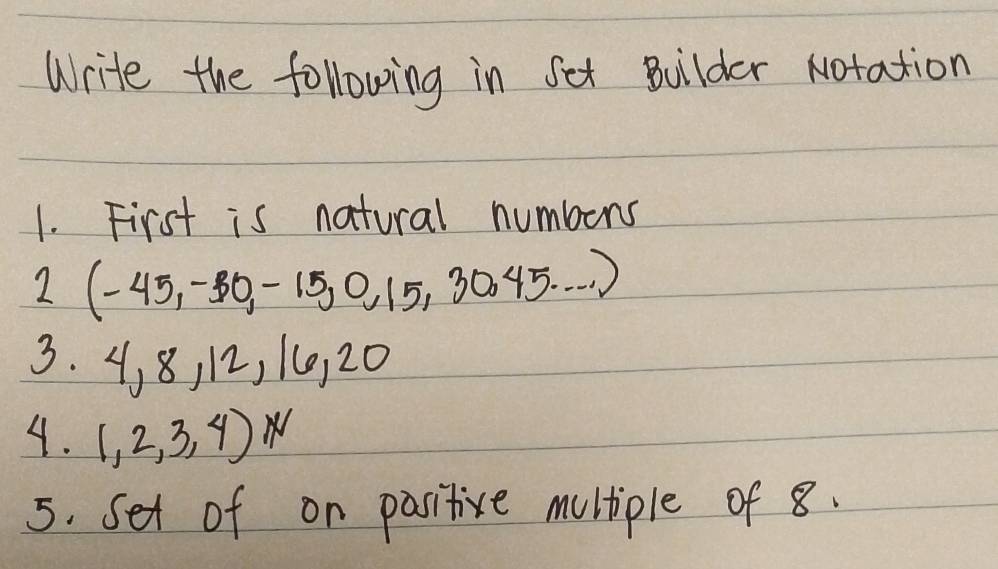 Write the following in Set Builder Notation
1. First is natural numbers
2 (-45,-30,-15,0,15, 30,45....)
3. 4,8,12,16,20
4. 1,2,3,4) IN
5. Set of on positive multiple of 8.